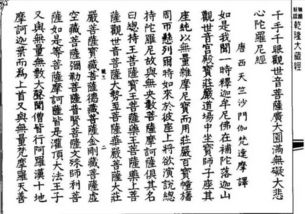 乾隆大藏經
千手千眼觀世音菩薩廣大圓滿無礙大悲
心陀羅尼經
唐西天竺沙門伽梵達摩譯
如是我聞一時釋迦牟尼佛在補陀落迦山
觀世音宮殿寶莊嚴道場中坐寶師子座其
座純以無量雜摩尼寶而用莊嚴百寶幢旛
周帀懸列爾時如來於彼座上將欲演說總
持陀羅尼故與無央數菩薩摩訶薩俱其名
曰總持王菩薩寶王菩薩藥王菩薩藥上菩
薩觀世音菩薩大勢至菩薩華嚴菩薩大莊
嚴菩薩寶藏菩薩德藏菩薩金剛藏菩薩虛
空藏菩薩彌勒菩薩普賢菩薩文殊師利菩
薩如是等菩薩摩訶薩皆是灌頂大法王子
又與無量無數大聲聞僧皆行阿羅漢十地
摩訶迦葉而為上首又與無量梵摩羅天善